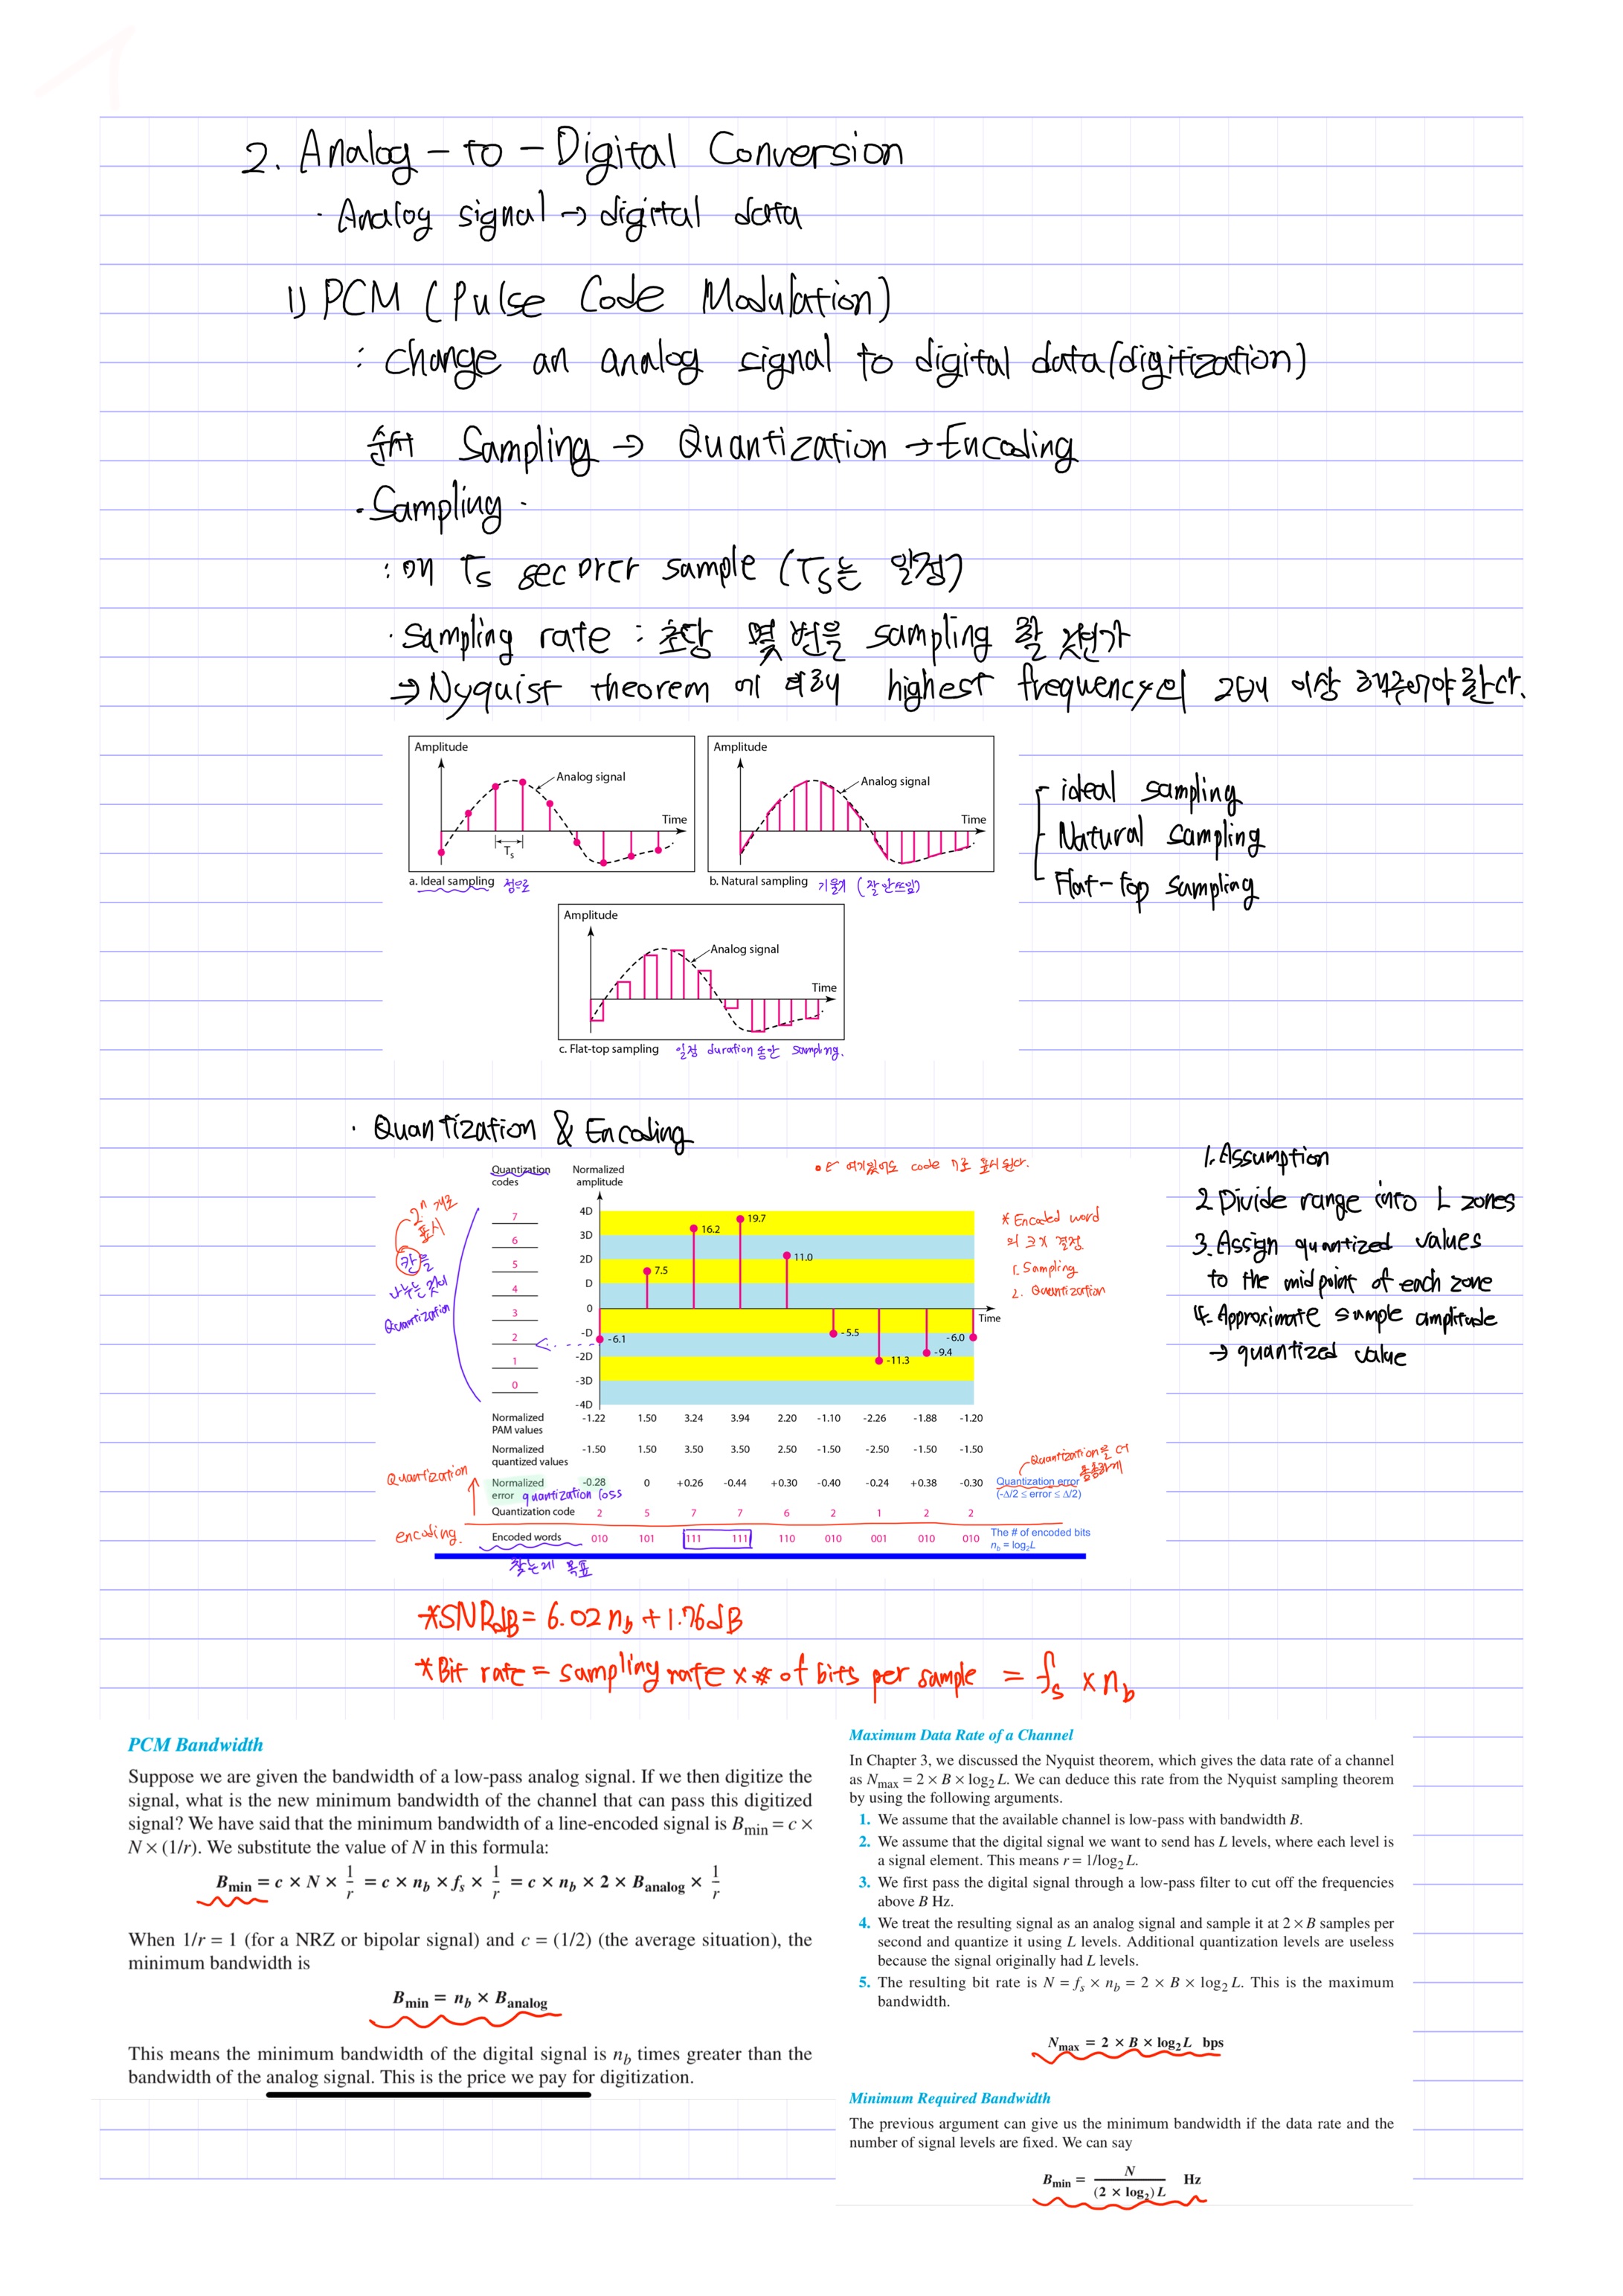 2. Analog-to-Digital Conversion
· Analog signal → digital data
1) PCM (Pulse Code Modulation)
: change an analog signal to digital data(digitization)
순서 Sampling → Quantization → Encoding
· Sampling ·
: 매 Ts sec 마다 sample (Ts는 일정)
· sampling rate : 초당 몇 번을 sampling 할 것인가
→ Nyquist theorem에 의해 highest frequency의 2배 이상 해주어야 한다.
Amplitude
Analog signal
Time
Ts
a. Ideal sampling 점으로
Amplitude
Analog signal
Time
b. Natural sampling 기울기 (잘 안쓰임)
Amplitude
Analog signal
Time
c. Flat-top sampling 일정 duration동안 sampling.
ideal sampling
Natural sampling
Flat-top sampling
· Quantization & Encoding
Quantization codes
Normalized amplitude
는 여기있어도 code 7로 표시된다.
2ⁿ 개로 표시
칸을
나누는 것이
Quantization
7
6
5
4
3
2
1
0
4D
3D
2D
D
0
-D
-2D
-3D
-4D
Time
-6.1
7.5
16.2
19.7
11.0
-5.5
-11.3
-9.4
-6.0
* Encoded word
의 크기 결정
1. Sampling
2. Quantization
1. Assumption
2. Divide range into L zones
3. Assign quantized values
to the midpoint of each zone
4. Approximate sample amplitude
→ quantized value
Normalized PAM values -1.22 1.50 3.24 3.94 2.20 -1.10 -2.26 -1.88 -1.20
Normalized quantized values -1.50 1.50 3.50 3.50 2.50 -1.50 -2.50 -1.50 -1.50
Normalized error -0.28 0 +0.26 -0.44 +0.30 -0.40 -0.24 +0.38 -0.30
quantization loss
Quantization error
(-Δ/2 ≤ error ≤ Δ/2)
Quantization을 더
촘촘하게
Quantization
Quantization code 2 5 7 7 6 2 1 2 2
encoding.
Encoded words 010 101 111 111 110 010 001 010 010
The # of encoded bits
n_b = log₂L
찾는게 목표
*SNRdB = 6.02 n_b + 1.76dB
*Bit rate = sampling rate × # of bits per sample = f_s × n_b
PCM Bandwidth
Suppose we are given the bandwidth of a low-pass analog signal. If we then digitize the
signal, what is the new minimum bandwidth of the channel that can pass this digitized
signal? We have said that the minimum bandwidth of a line-encoded signal is B_min = c ×
N × (1/r). We substitute the value of N in this formula:
B_min = c × N × 1/r = c × n_b × f_s × 1/r = c × n_b × 2 × B_analog × 1/r
When 1/r = 1 (for a NRZ or bipolar signal) and c = (1/2) (the average situation), the
minimum bandwidth is
B_min = n_b × B_analog
This means the minimum bandwidth of the digital signal is n_b times greater than the
bandwidth of the analog signal. This is the price we pay for digitization.
Maximum Data Rate of a Channel
In Chapter 3, we discussed the Nyquist theorem, which gives the data rate of a channel
as N_max = 2 × B × log₂ L. We can deduce this rate from the Nyquist sampling theorem
by using the following arguments.
1. We assume that the available channel is low-pass with bandwidth B.
2. We assume that the digital signal we want to send has L levels, where each level is
a signal element. This means r = 1/log₂ L.
3. We first pass the digital signal through a low-pass filter to cut off the frequencies
above B Hz.
4. We treat the resulting signal as an analog signal and sample it at 2 × B samples per
second and quantize it using L levels. Additional quantization levels are useless
because the signal originally had L levels.
5. The resulting bit rate is N = f_s × n_b = 2 × B × log₂ L. This is the maximum
bandwidth.
N_max = 2 × B × log₂L bps
Minimum Required Bandwidth
The previous argument can give us the minimum bandwidth if the data rate and the
number of signal levels are fixed. We can say
B_min = N / (2 × log₂) L Hz